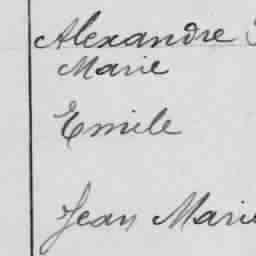 Alexandre
Marie
Emile
Jean Marie